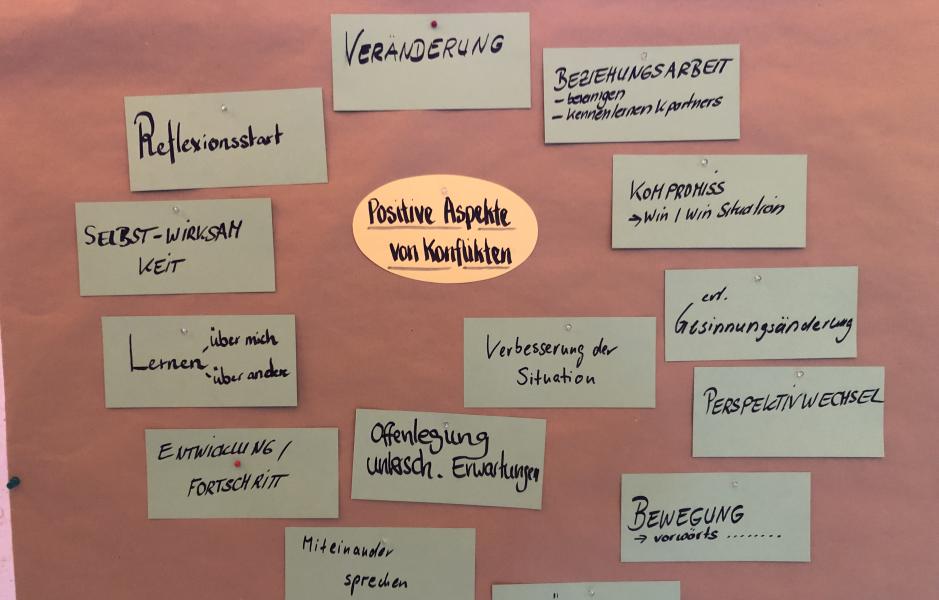 VERÄNDERUNG
BEZIEHUNGSARBEIT
- bereinigen
- kennenlernen K partners
Reflexionsstart
KOMPROMISS
→ Win / Win Situation
Positive Aspekte
von Konflikten
SELBST-WIRKSAM
KEIT
evt.
Gesinnungsänderung
Lernen
über mich
über andere
Verbesserung der
Situation
PERSPEKTIVWECHSEL
Offenlegung
untersch. Erwartungen
ENTWICKLUNG /
FORTSCHRITT
BEWEGUNG
→ vorwärts ........
Miteinander
sprechen